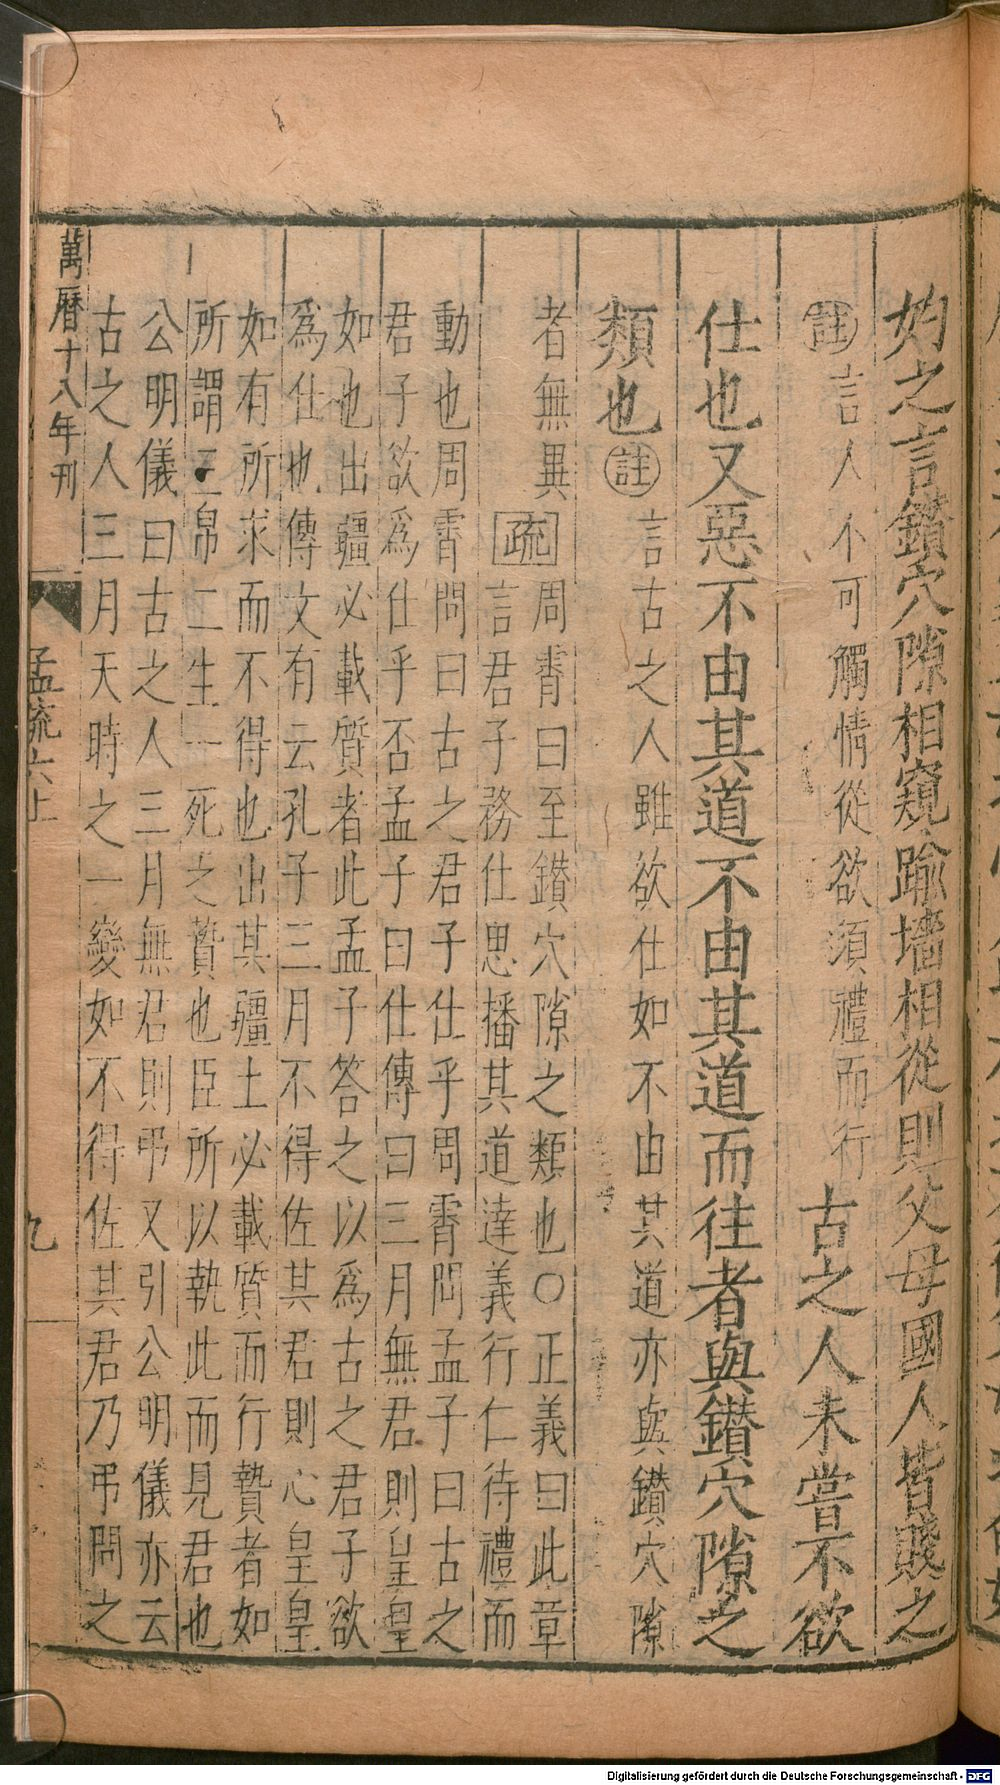 妁之言鑽穴隙相窺踰墻相從則父母國人皆賤之
註言人不可觸情從欲須禮而行古之人未嘗不欲
仕也又惡不由其道不由其道而往者與鑽穴隙之
類也註言古之人雖欲仕如不由其道亦與鑽穴隙
者無異疏周霄曰至鑽穴隙之類也○正義曰此章
言君子務仕思播其道達義行仁待禮而
動也周霄問曰古之君子仕乎周霄問孟子曰古之
君子欲為仕乎否孟子曰仕傳曰三月無君則皇皇
如也出疆必載質者此孟子答之以為古之君子欲
為仕也傳文有云孔子三月不得佐其君則心皇皇
如有所求而不得也出其疆土必載質而行贄者如
所謂三帛二生一死之贄也臣所以執此而見君也
公明儀曰古之人三月無君則弔又引公明儀亦云
古之人三月天時之一變如不得佐其君乃弔問之
萬曆十八年刊
孟疏六上
九
Digitalisierung gefördert durch die Deutsche Forschungsgemeinschaft - DFG